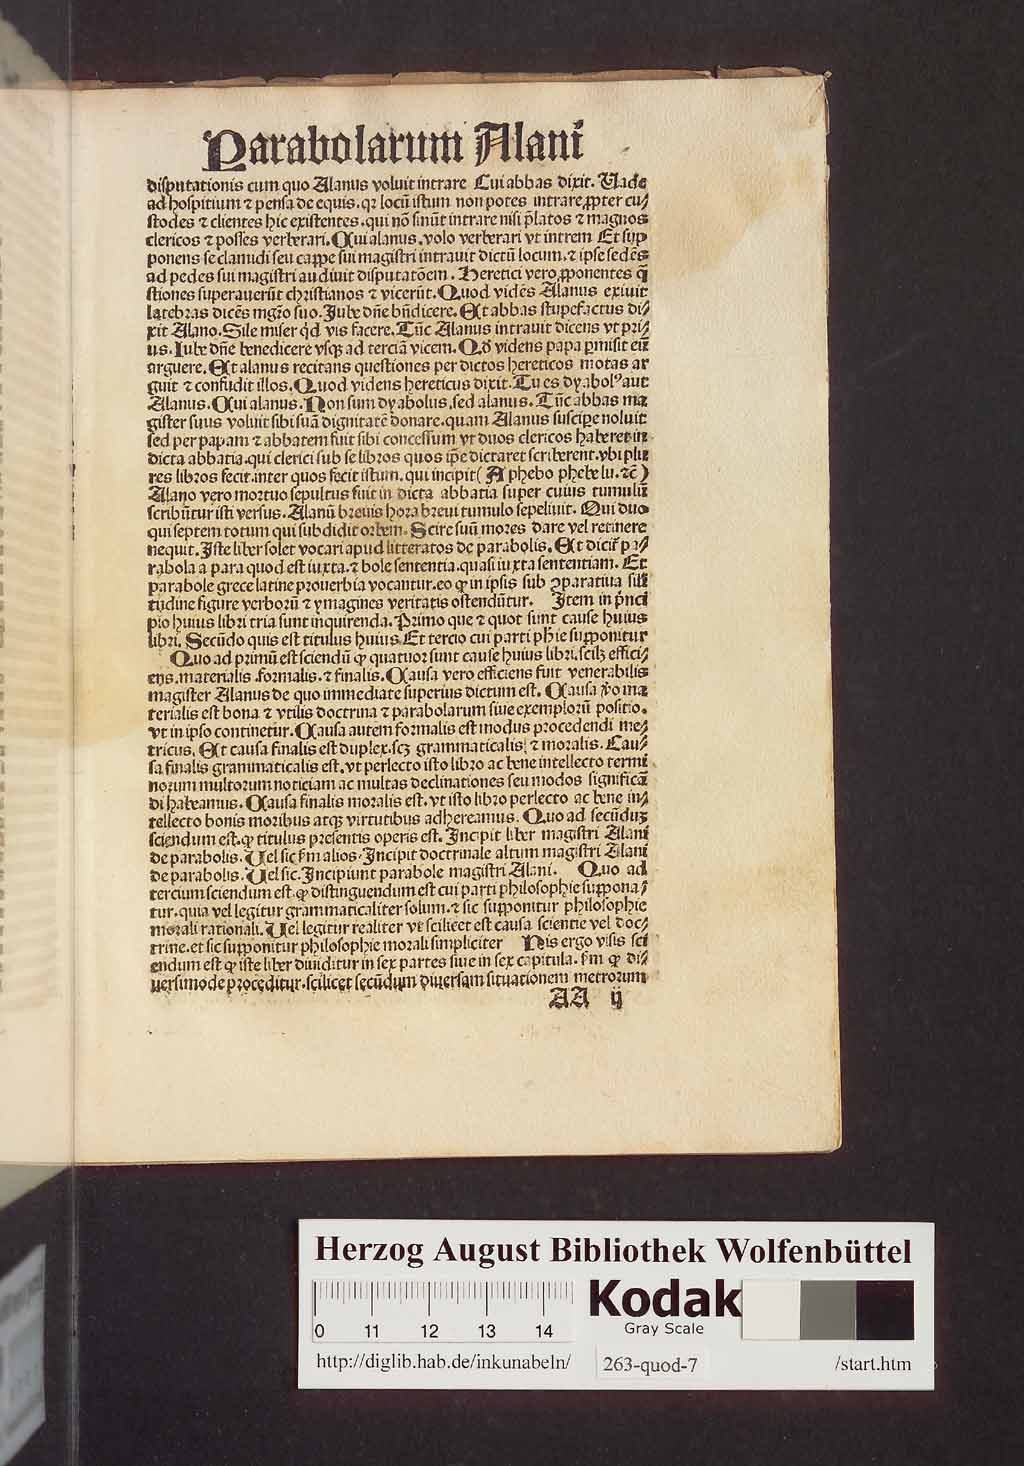 Parabolarum Alani
disputationis cum quo Alanus voluit intrare Cui abbas dixit. Vade
ad hospitium ⁊ pensa de equis. qꝛ locū istum non potes intrare ꝓpter cu⸗
stodes ⁊ clientes hic existentes. qui nō sinūt intrare nisi p̄latos ⁊ magnos
clericos ⁊ posses verberari. Cui alanus. volo verberari vt intrem Et sup
ponens se clamidi seu cappe sui magistri intrauit dictū locum. ⁊ ipse sedēs
ad pedes sui magistri audiuit disputatōem. Heretici vero ꝓponentes q̄
stiones superauerūt christianos ⁊ vicerūt. Quod vidēs Alanus exiuit
latebras dicēs mgr̄o suo. Jube dn̄e bn̄dicere. Et abbas stupefactus di⸗
xit Alano. Sile miser qd̄ vis facere. Tūc Alanus intrauit dicens vt pri⸗
us. Jube dn̄e benedicere vsqꝫ ad terciā vicem. Qd̄ videns papa p̄misit eū
arguere. Et alanus recitans questiones per dictos hereticos motas ar
guit ⁊ confudit illos. Quod videns hereticus dixit. Tu es dyabolꝰ aut
Alanus. Cui alanus. Non sum dyabolus, sed alanus. Tūc abbas ma
gister suus voluit sibi suā dignitatē donare. quam Alanus suscipe noluit
sed per papam ⁊ abbatem fuit sibi concessum vt duos clericos haberet in
dicta abbatia. qui clerici sub se libros quos ip̄e dictaret scriberent. vbi plu
res libros fecit. inter quos fecit istum. qui incipit ( A phebo phebe lu. ⁊c̄ )
Alano vero mortuo sepultus fuit in dicta abbatia super cuius tumulū
scribūtur isti versus. Alanū breuis hora breui tumulo sepeliuit. Qui duo
qui septem totum qui subdidit orbem. Scire suū mores dare vel retinere
nequit. Iste liber solet vocari apud litteratos de parabolis. Et dicir̄ pa⸗
rabola a para quod est iuxta. ⁊ bole sententia. quasi iuxta sententiam. Et
parabole grece latine prouerbia vocantur. eo ꝙ in ipsis sub ꝯparatiua sili
tudine figure verborū ⁊ ymagines veritatis ostendūtur. Item in p̄nci
pio huius libri tria sunt inquirenda. Primo que ⁊ quot sunt cause huius
libri. Secūdo quis est titulus huius. Et tercio cui parti ph̄ie supponitur
Quo ad primū est sciendū ꝙ quatuor sunt cause huius libri. scilꝫ effici⸗
ens. materialis. formalis. ⁊ finalis. Causa vero efficiens fuit venerabilis
magister Alanus de quo immediate superius dictum est. Causa v̄o ma
terialis est bona ⁊ vtilis doctrina ⁊ parabolarum siue exemplorū positio.
vt in ipso continetur. Causa autem formalis est modus procedendi me⸗
tricus. Et causa finalis est duplex. scꝫ grammaticalis ⁊ moralis. Cau⸗
sa finalis grammaticalis est. vt perlecto isto libro ac bene intellecto termi
norum multorum noticiam ac multas declinationes seu modos significā
di habeamus. Causa finalis moralis est. vt isto libro perlecto ac bene in⸗
tellecto bonis moribus atqꝫ virtutibus adhereamus. Quo ad secūduꝫ
sciendum est. ꝙ titulus presentis operis est. Incipit liber magistri Alani
de parabolis. Vel sic ẜm alios. Incipit doctrinale altum magistri Alani
de parabolis. Vel sic. Incipiunt parabole magistri Alani. Quo ad
tercium sciendum est. ꝙ distinguendum est cui parti philosophie suppona⸗
tur. quia vel legitur grammaticaliter solum. ⁊ sic supponitur philosophie
morali rationali. Vel legitur realiter vt scilicet est causa scientie vel doc⸗
trine. et sic supponitur philosophie morali simpliciter His ergo visis sci
endum est ꝙ iste liber diuiditur in sex partes siue in sex capitula. ẜm ꝙ di⸗
uersimode proceditur. scilicet secūdum diuersam situationem metrorum
AA ij
Herzog August Bibliothek Wolfenbüttel
0 11 12 13 14
Kodak
Gray Scale
http://diglib.hab.de/inkunabeln/ 263-quod-7 /start.htm